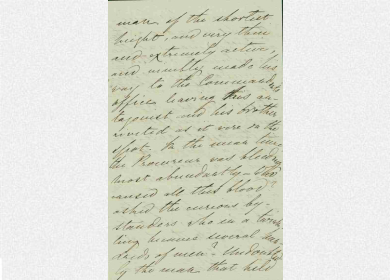 man of the shortest
height, and very thin
and extremely active,
and nimbly made his
way to the Commandants
office leaving this an-
tagonist and his brother
riveted as it were on the
spot. In the mean time
the Procureur was bleeding
most abundantly – Who
caused all this blood?
asked the curious by-
standers who in a twink
ling became several hun
dreds of men? Undoubted
ly the man that held